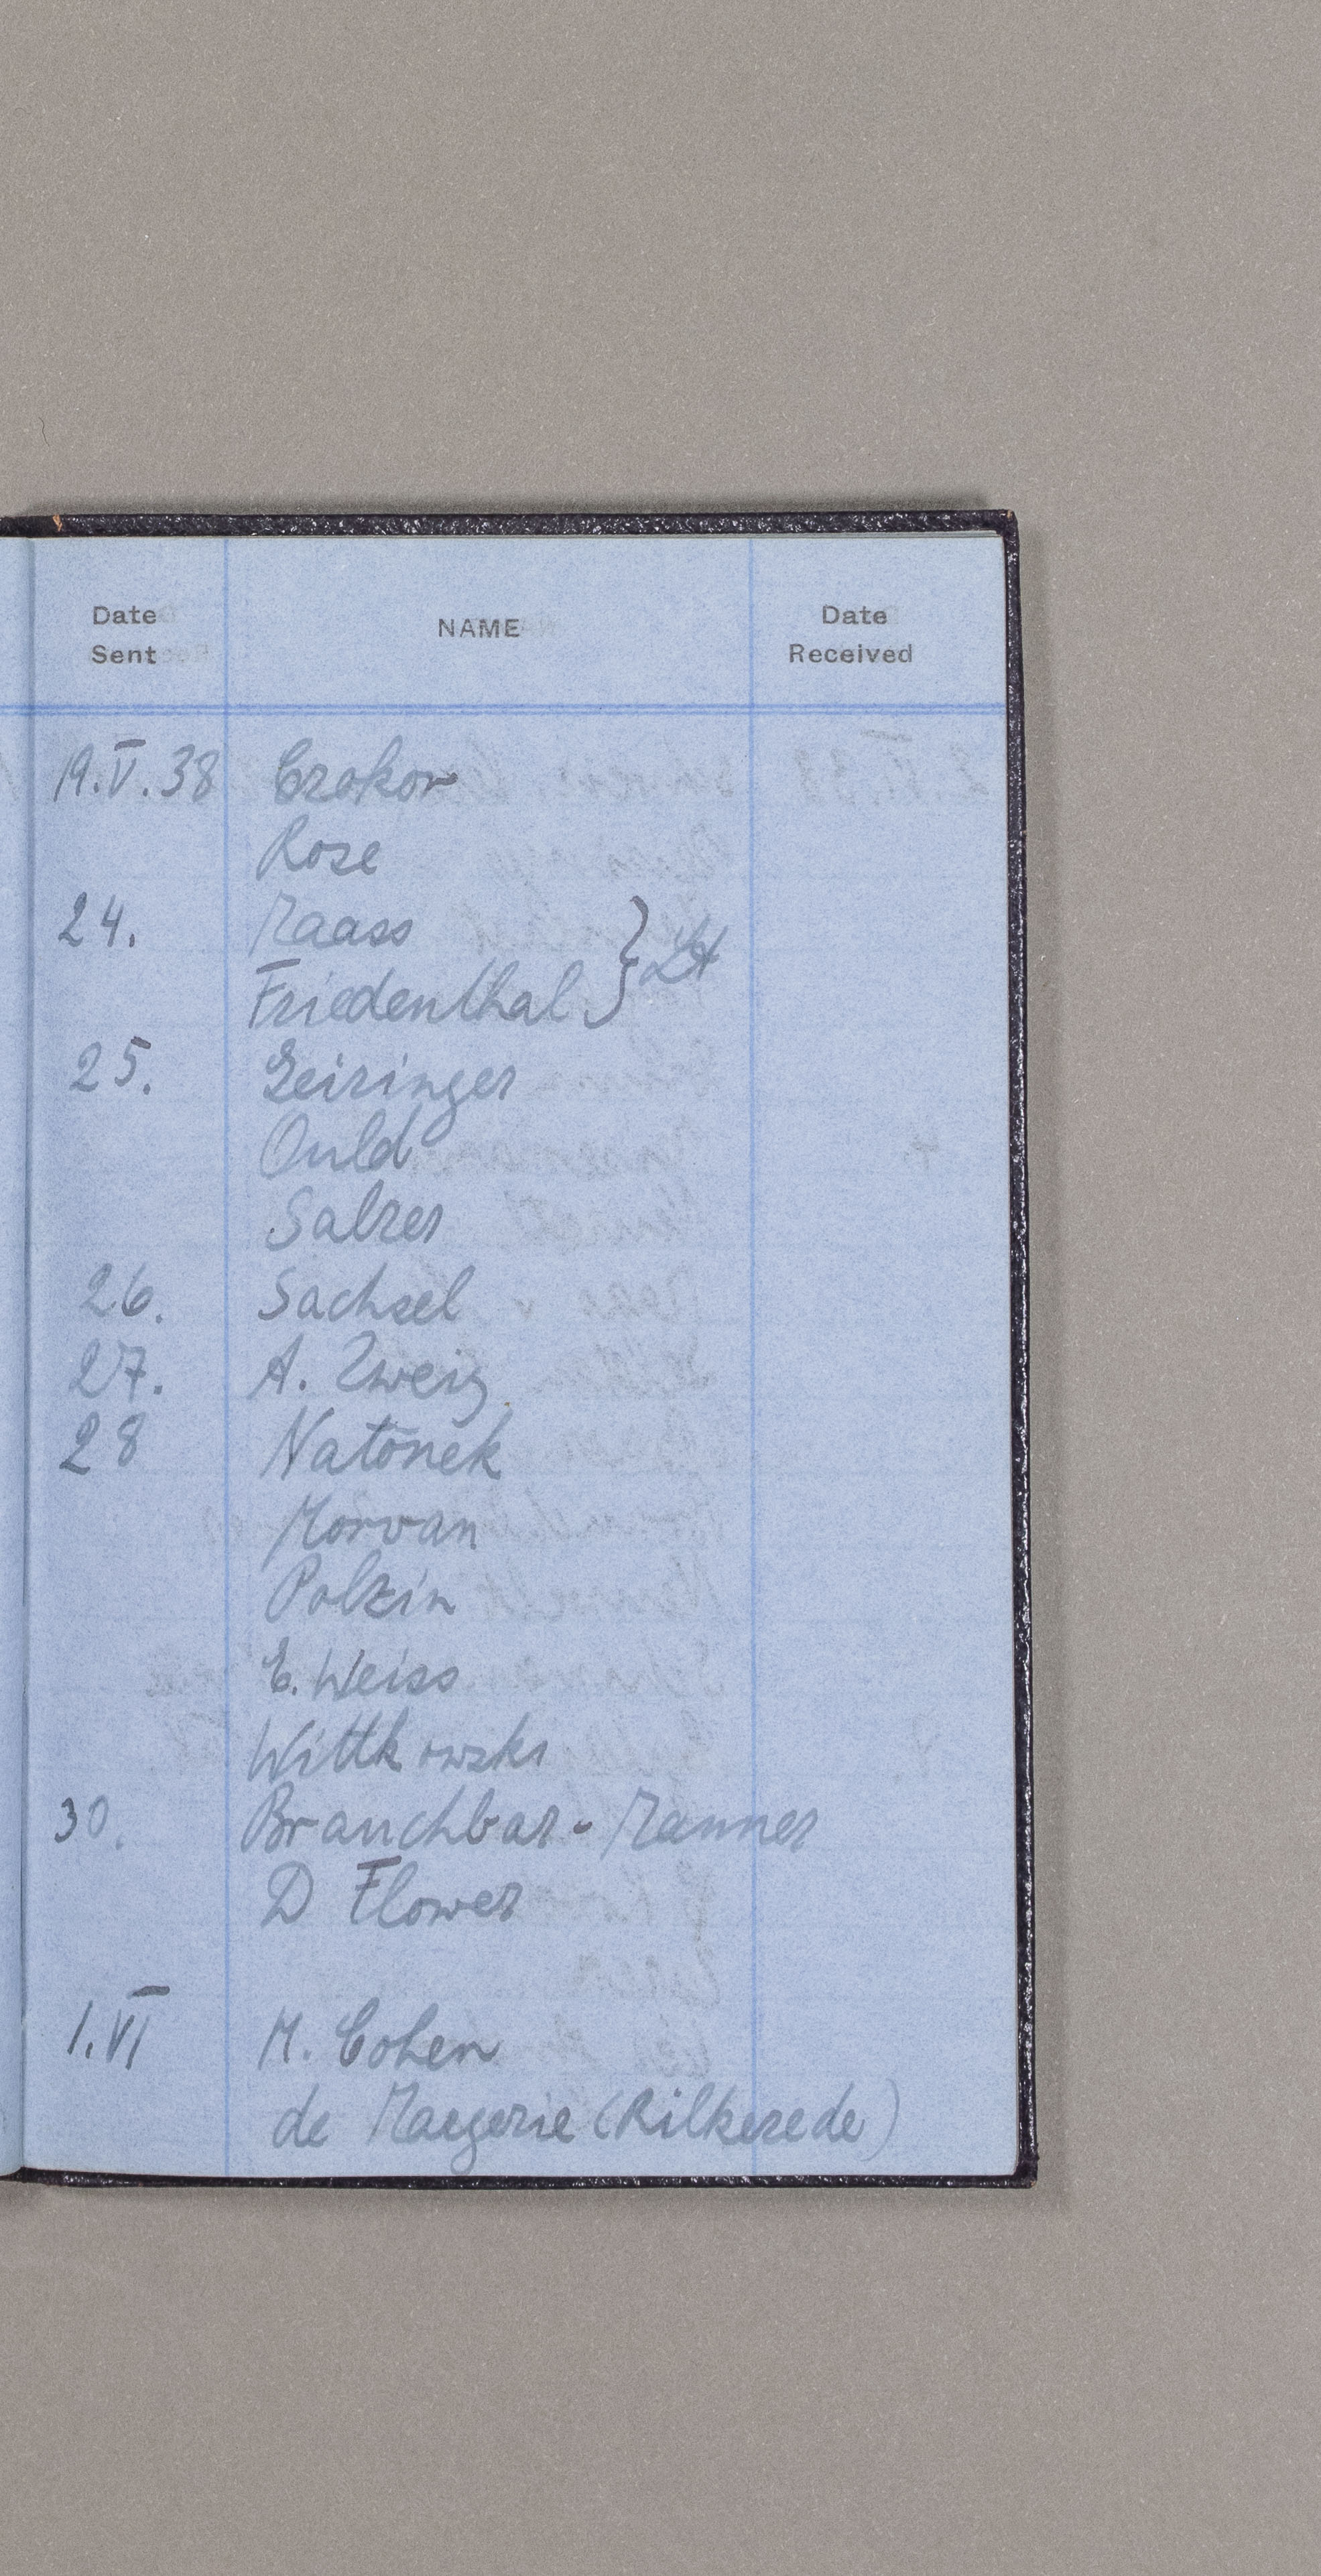 Date Sent NAME Date Received
19.V.38 Czokor
Rose
24. Maass
Friedenthal }
25. Geiringer
Ould
Salzer
26. Sachsel
27. A. Zweig
28 Natonek
Morvan
Polzin
E. Weiss
Wittkowski
30. Brauchbar - Manner
D Flower
1.VI M. Cohen
de Margerie (Rilkerede)